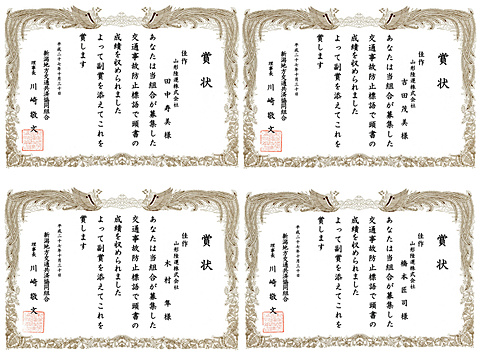 賞状
佳作
山形陸運株式会社
田中寿美様
あなたは当組合が募集した
交通事故防止標語で頭書の
成績を収められました
よって副賞を添えてこれを
賞します
平成二十七年十月三十日
新潟地方交通共済協同組合
理事長 川崎敬文
賞状
佳作
山形陸運株式会社
吉田茂美様
あなたは当組合が募集した
交通事故防止標語で頭書の
成績を収められました
よって副賞を添えてこれを
賞します
平成二十七年十月三十日
新潟地方交通共済協同組合
理事長 川崎敬文
賞状
佳作
山形陸運株式会社
木村隼様
あなたは当組合が募集した
交通事故防止標語で頭書の
成績を収められました
よって副賞を添えてこれを
賞します
平成二十七年十月三十日
新潟地方交通共済協同組合
理事長 川崎敬文
賞状
佳作
山形陸運株式会社
橋本匠司様
あなたは当組合が募集した
交通事故防止標語で頭書の
成績を収められました
よって副賞を添えてこれを
賞します
平成二十七年十月三十日
新潟地方交通共済協同組合
理事長 川崎敬文